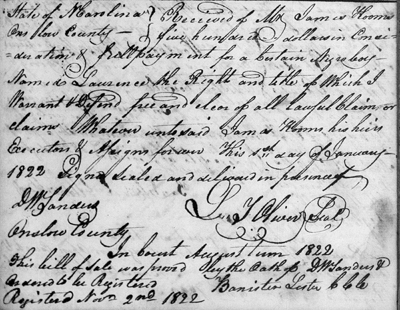 State of N Carolina } Received of Mr James Hooms
Onslow County } five hundred dollars in Consi-
deration & full payment for a Certain Negro boy
Named Lawrence the Right and title of Which I
Warrant & Defend free and clear of all lawful Claim or
claims Whatever unto said James Hooms his heirs
Executors & Assigns forever This 1st day of January
1822 Signed sealed and delivered in presence of
D W Sanders L T Oliver Seal
Onslow County
In Court August Term 1822
This bill of Sale was proved by the Oath of D W Sanders &
Ordered to be Registered Bannister Lester C C C
Registered Novr 2nd 1822